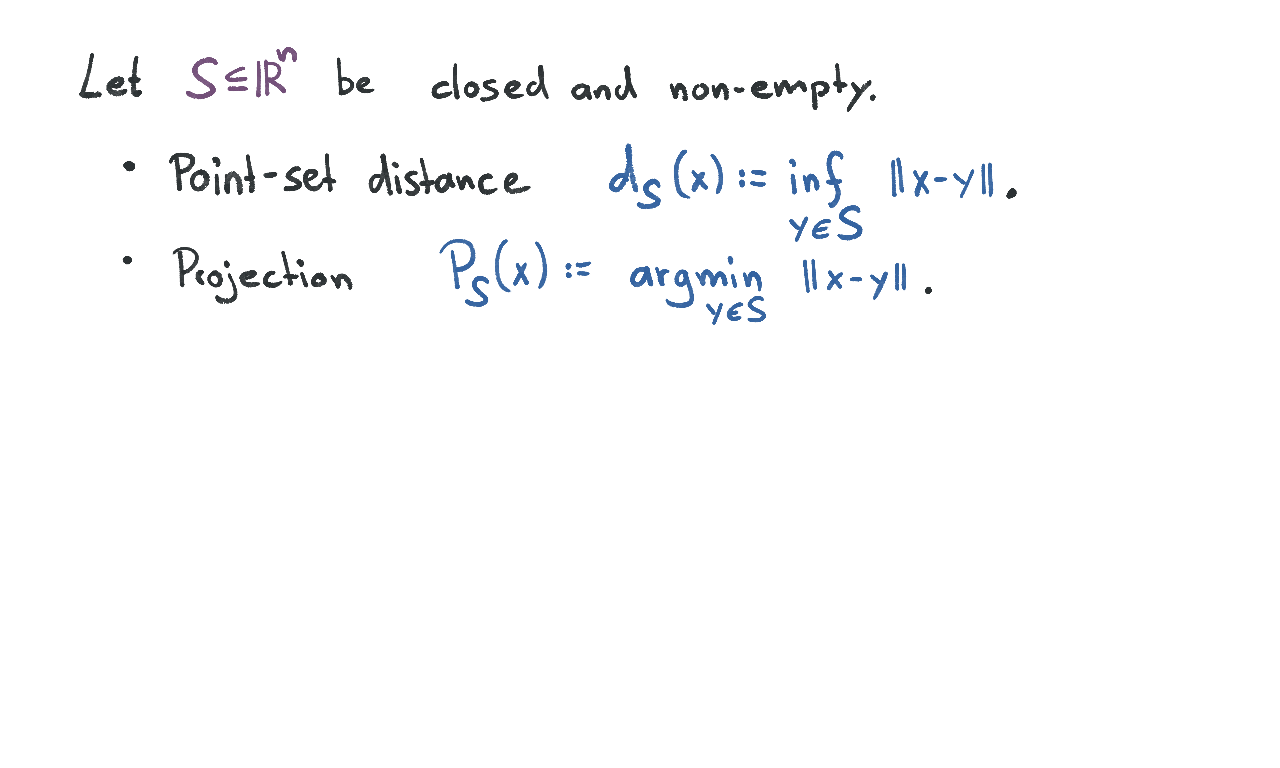 Let S⊆ℝⁿ be closed and non-empty.
• Point-set distance d_S(x) := inf_{y∈S} ||x-y||.
• Projection P_S(x) := argmin_{y∈S} ||x-y||.